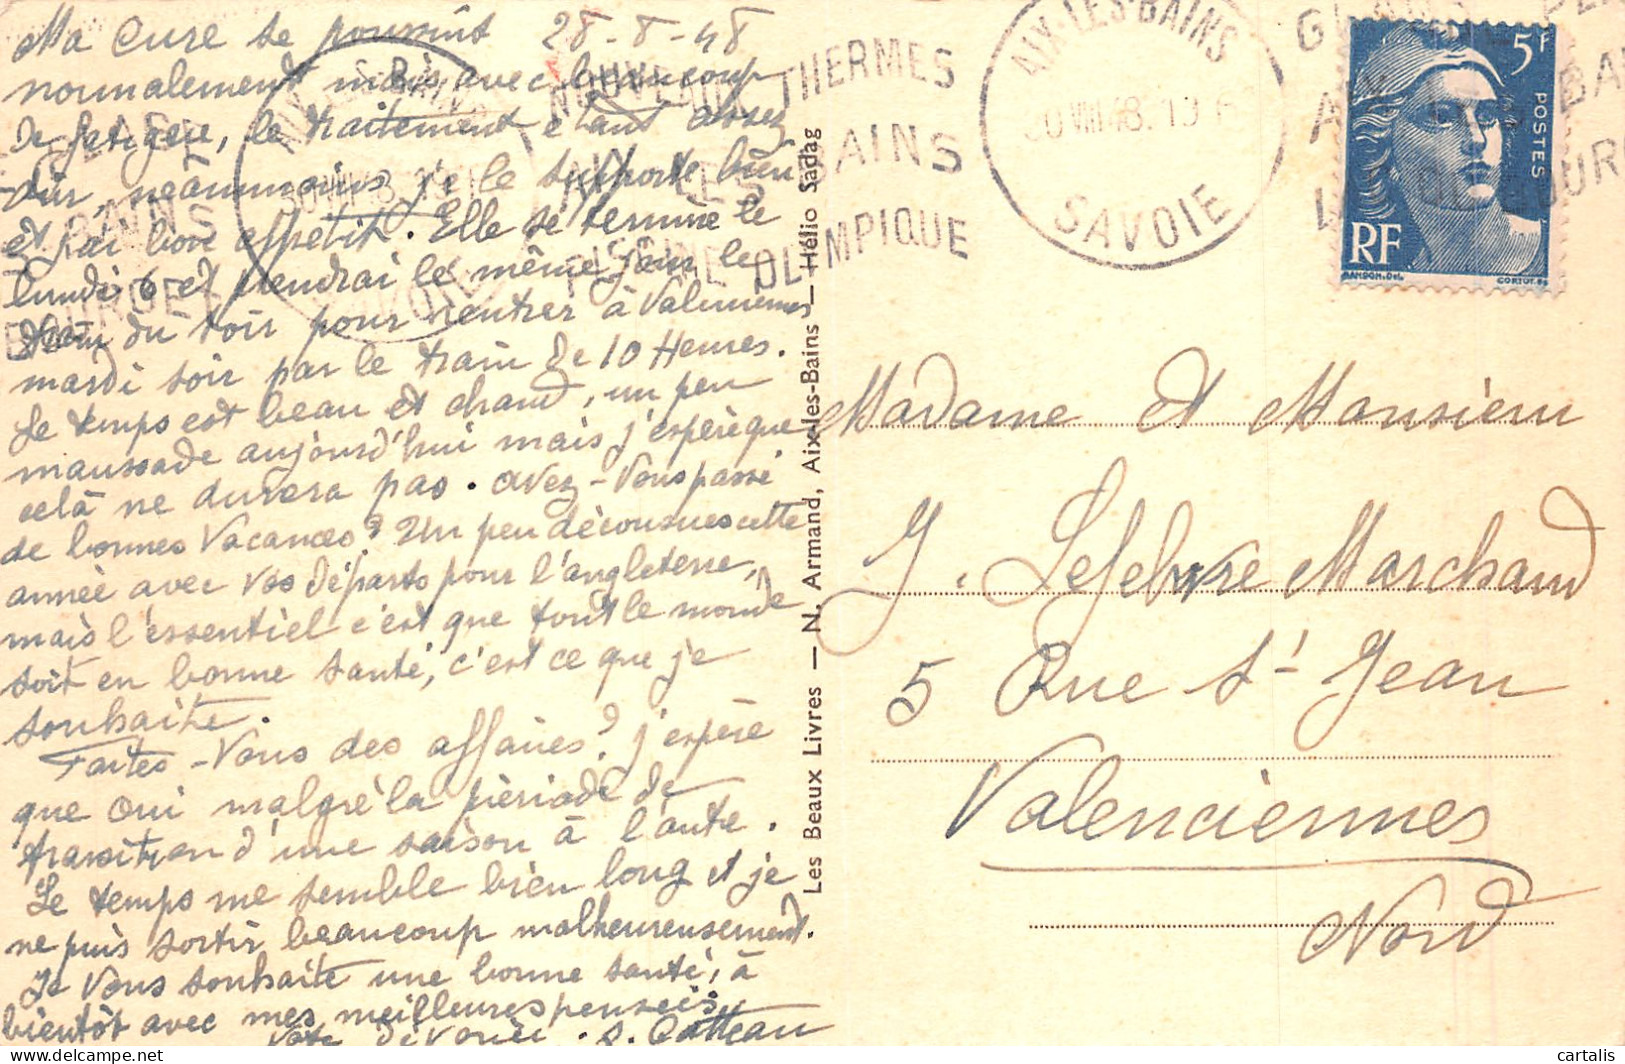 Ma Cure se poursuit 28-8-48
normalement mais avec beaucoup
de fatigue, le traitement étant assez
dur, néanmoins je le supporte bien
et j'ai bon appétit. Elle se termine le
lundi 6 et prendrai le même jour le
train du soir pour rentrer à Valenciennes
mardi soir par le train de 10 Heures.
Le temps est beau et chaud, un peu
maussade aujourd'hui mais j'espère que
celà ne durera pas. avez-Vous passé
de bonnes Vacances? Un peu décousues cette
année avec vos départs pour l'angleterre,
mais l'essentiel c'est que tout le monde
soit en bonne santé, c'est ce que je
souhaite.
Faites-Vous des affaires? j'espère
que oui malgré la période de
transition d'une saison à l'autre.
Le temps me semble bien long et je
ne puis sortir beaucoup malheureusement.
Je Vous souhaite une bonne santé, à
bientôt avec mes meilleures pensées,
Votre dévouée. S. Catteau
Les Beaux Livres — N. Armand, Aix-les-Bains — Hélio Sadag
NOUVEAUX THERMES
AIX LES BAINS
PISCINE OLYMPIQUE
AIX-LES-BAINS
30 VIII 48
SAVOIE
5F
POSTES
RF
GANDON.Del.
CORTOT.sc
Madame et Monsieur
J. Lefebvre Marchand
5 Rue St Jean
Valenciennes
Nord
cartalis